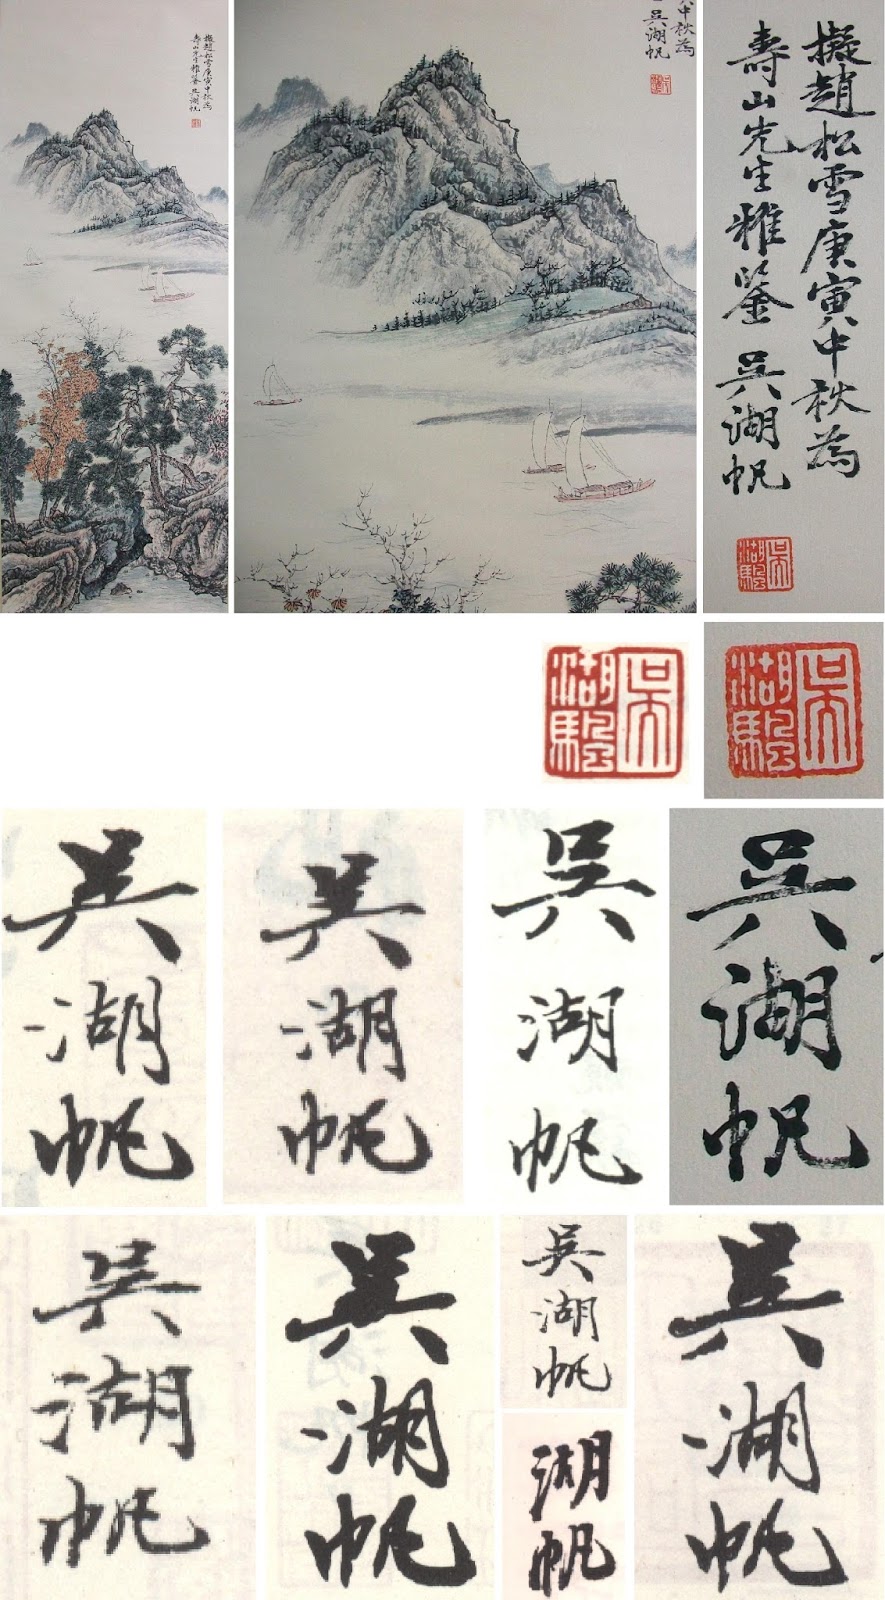 擬趙松雪庚寅中秋為
壽山先生雅鑒 吳湖帆
吳湖颿
中秋為
吳湖帆
吳湖颿
擬趙松雪庚寅中秋為
壽山先生雅鑒 吳湖帆
吳湖颿
吳湖颿
吳湖颿
吳湖帆
吳湖帆
吳湖帆
吳湖帆
吳湖帆
吳湖帆
吳湖帆
湖帆
吳湖帆